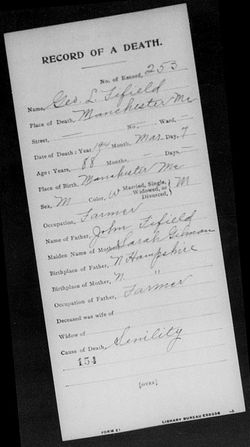 RECORD OF A DEATH.
No. of Record, 253
Name, Geo. L. Fifield
Place of Death, Manchester Me
Street, No. Ward,
Date of Death: Year, Month, Mar Day, 7
Age: Years, 88 Months, Days,
Place of Birth, Manchester Me
Sex, M Color, W Married, Single, Widowed, or Divorced, M
Occupation, Farmer
Name of Father, John Fifield
Maiden Name of Mother, Sarah Gilman
Birthplace of Father, N Hampshire
Birthplace of Mother, N "
Occupation of Father, Farmer
Deceased was wife of
Widow of
Cause of Death, Senility
154
[OVER]
FORM E1 LIBRARY BUREAU